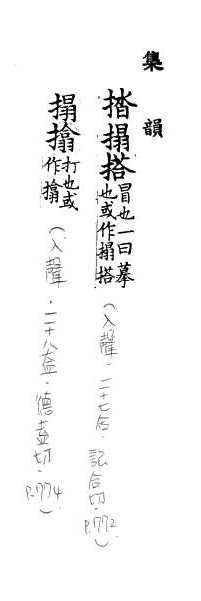 集韻
搭搨撘冒也一曰摹也或作搨撘
(入聲.二十七合.託合切.P.772)
搨㩉打也或作㩉
(入聲.二十八盍.德盍切.P.774)